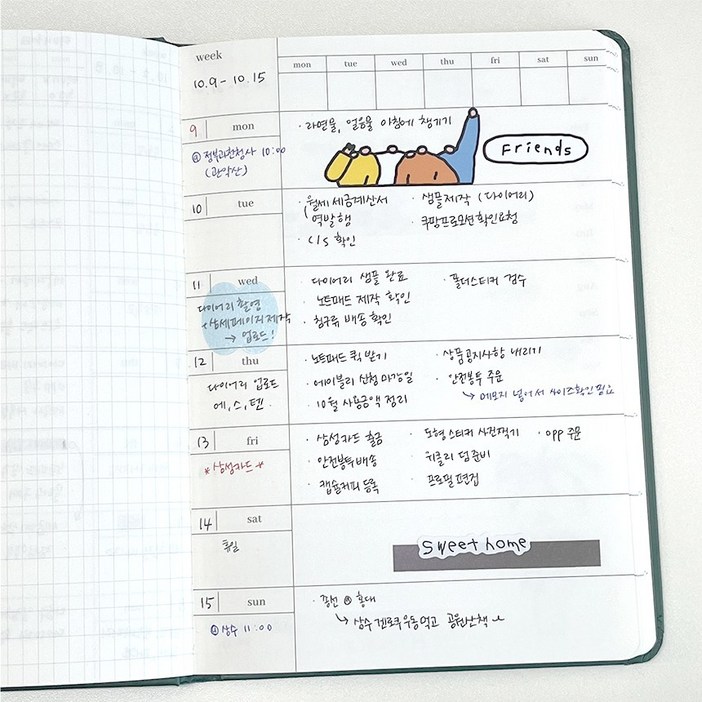 week
10.9 - 10.15
mon tue wed thu fri sat sun
9 mon
정부과천청사 10:00
(관악산)
· 라면물, 얼음물 아침에 챙기기
Friends
10 tue
· 월세 세금계산서
역발행
· C/S 확인
· 샘플제작 (다이어리)
· 쿠팡프로모션 확인요청
11 wed
다이어리 촬영
+상세페이지 제작
→ 업로드!
· 다이어리 샘플 완료
· 노트패드 제작 확인
· 침구류 배송 확인
· 폴더스티커 검수
12 thu
다이어리 업로드
에, 스, 텐.
· 노트패드 퀵 받기
· 에이블리 신청 마감일
· 10월 사용금액 정리
· 상품공지사항 내리기
· 안전봉투 주문
↳ 메모지 넣어서 사이즈확인 필요
13 fri
*삼성카드*
· 삼성카드 출금
· 안전봉투 배송
· 캡슐커피 등록
· 도형스티커 사진찍기
· 위클리 덤 준비
· 프로필 편집
· opp 주문
14 sat
휴일
sweet home
15 sun
상수 11:00
· 홍대
↳ 상수 우동먹고 공원산책